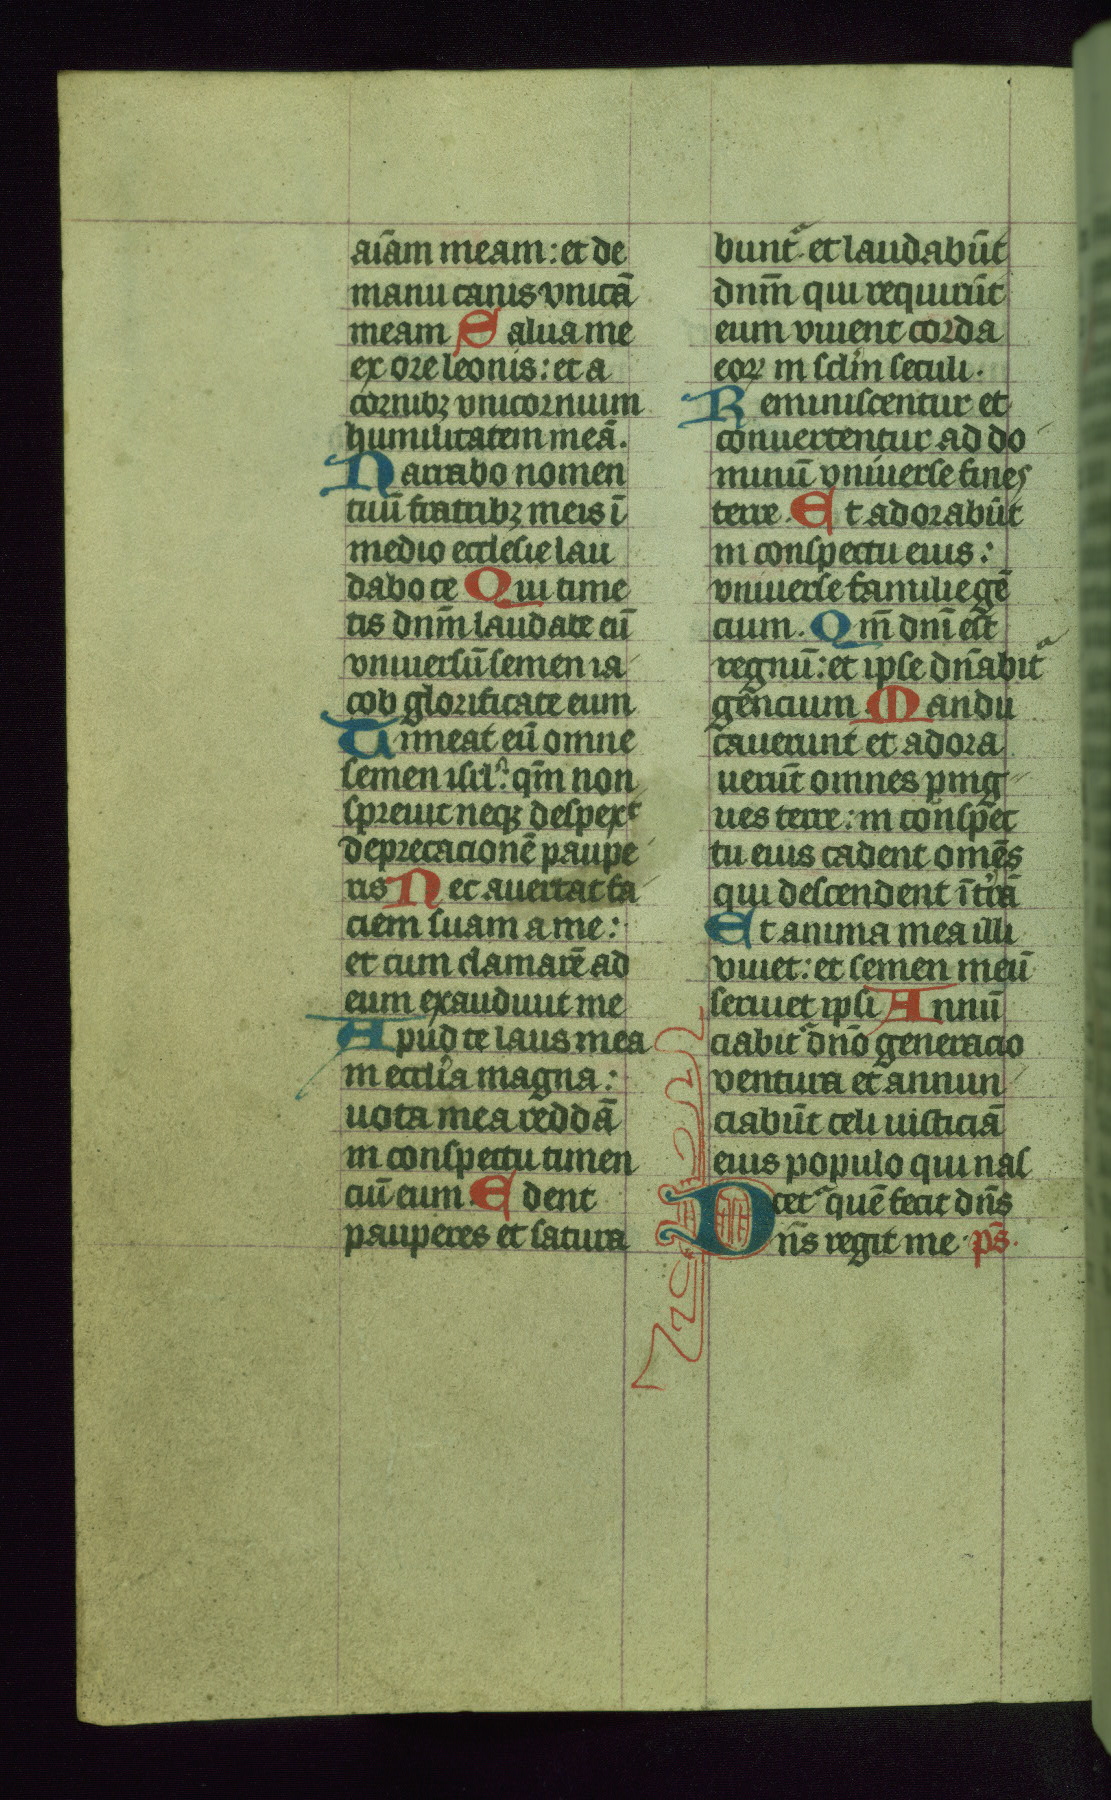 aīam meam: et de
manu canis vnicā
meam Salua me
ex ore leonis: et a
cornibꝫ vnicornuum
humilitatem meā.
Narrabo nomen
tuū fratribꝫ meis ī
medio ecclesie lau
dabo te Qui time
tis dnm̄ laudate eū
vniuersū semen ia
cob glorificate eum
Timeat eū omne
semen isrl̕: qm̄ non
spreuit neqꝫ despexͭ
deprecacionē paupe
ris Nec auertat fa
ciem suam a me:
et cum clamarē ad
eum exaudiuit me
Apud te laus mea
in eccl̕ia magna:
uota mea reddā
in conspectu timen
ciū eum Edent
pauperes et satura
buntᷓ et laudabūt
dnm̄ qui requirūt
eum viuent corda
eoꝝ in sclm̄ seculi.
Reminiscentur et
conuertentur ad do
minū vniuerse fines
terre. Et adorabūt
in conspectu eius:
vniuerse familie gē
cium. Qm̄ dnī est
regnū: et ipse dn̄abitᷓ
gēncium Mandu
cauerunt et adora
uerūt omnes ping
ues terre: in conspec
tu eius cadent omēs
qui descendent ī tr̄ā
Et anima mea illi
viuet: et semen meū
seruiet ipsi Annū
ciabitᷓ dn̄o generacio
ventura et annun
ciabūt celi iusticiā
eius populo qui nas
cetᷓ quē fecit dn̄s
Dn̄s regit me. ps̄.